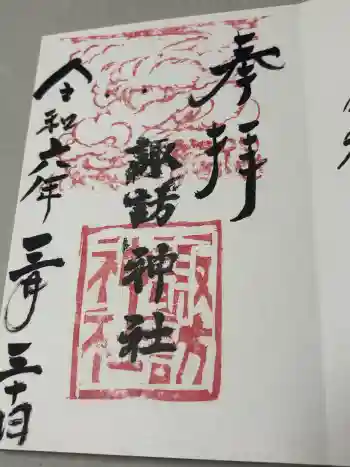 奉拝
諏訪神社
諏訪
神社
令和六年
三月
三十日